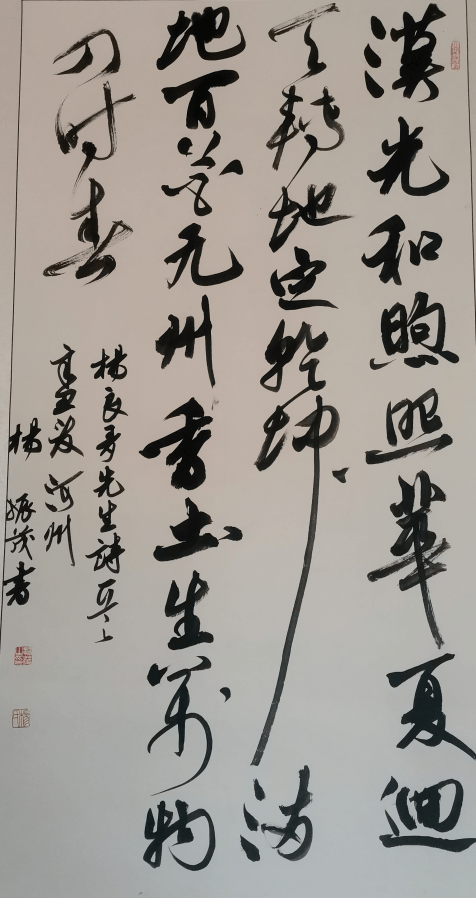 漢光和煦照華夏迴
天轉地定乾坤滿
地百花九州香土生萬物
四时春
楊良先生詩
河州
楊振茂書